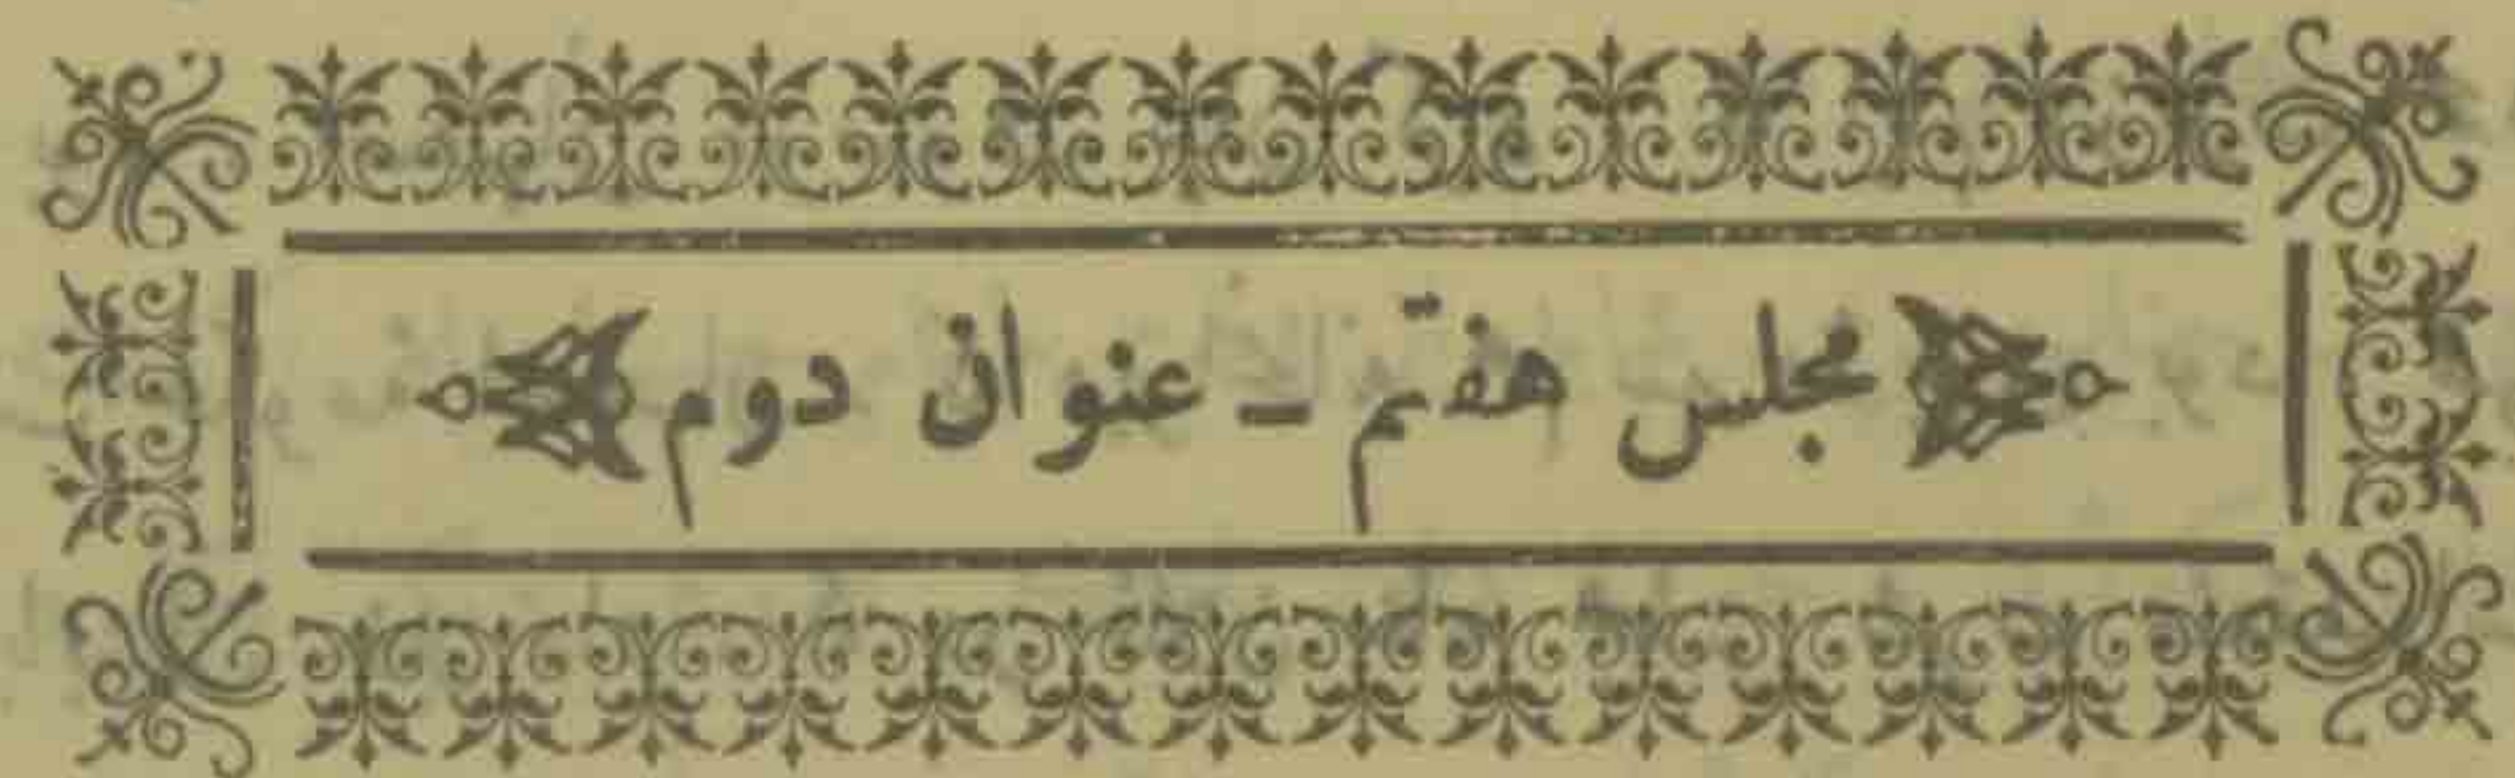 مجلس هفتم – عنوان دوم